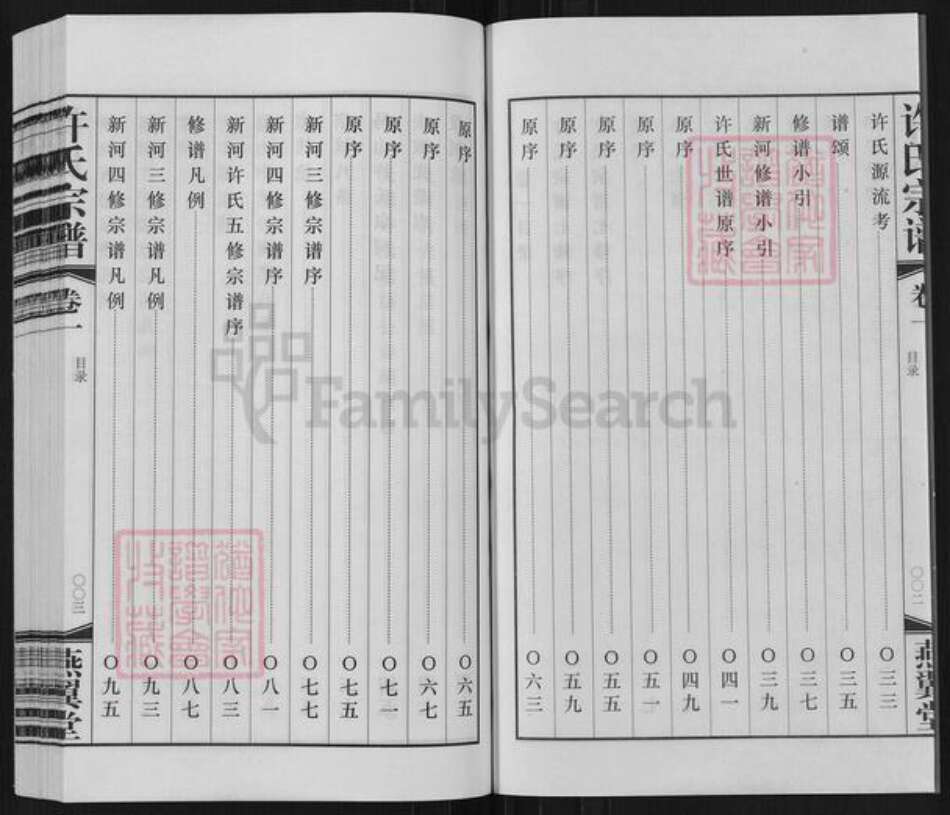 许氏宗谱
卷一
目录
〇〇二
燕翼堂
许氏源流考 〇三三
谱颂 〇三五
修谱小引 〇三七
新河修谱小引 〇三九
许氏世谱原序 〇四一
原序 〇四九
原序 〇五一
原序 〇五五
原序 〇五九
原序 〇六三
原序 〇六五
原序 〇六七
原序 〇七一
原序 〇七五
新河三修宗谱序 〇七七
新河四修宗谱序 〇八一
新河许氏五修宗谱序 〇八三
修谱凡例 〇八七
新河三修宗谱凡例 〇九三
新河四修宗谱凡例 〇九五
许氏宗谱
卷一
目录
〇〇三
燕翼堂
FamilySearch